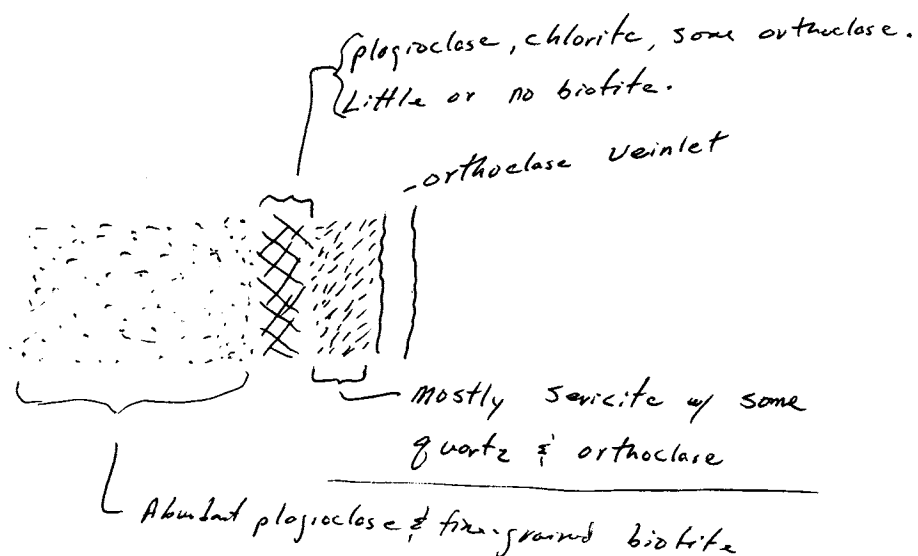 plagioclase, chlorite, some orthoclase.
Little or no biotite.
orthoclase veinlet
Mostly sericite w/ some
quartz & orthoclase
Abundant plagioclase & fine-grained biotite